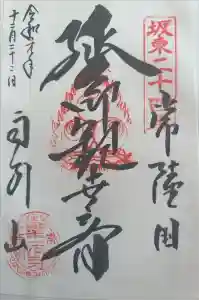 坂東二十四番
常陸国
延命観世音
雨引山
令和元年
十二月二十二日